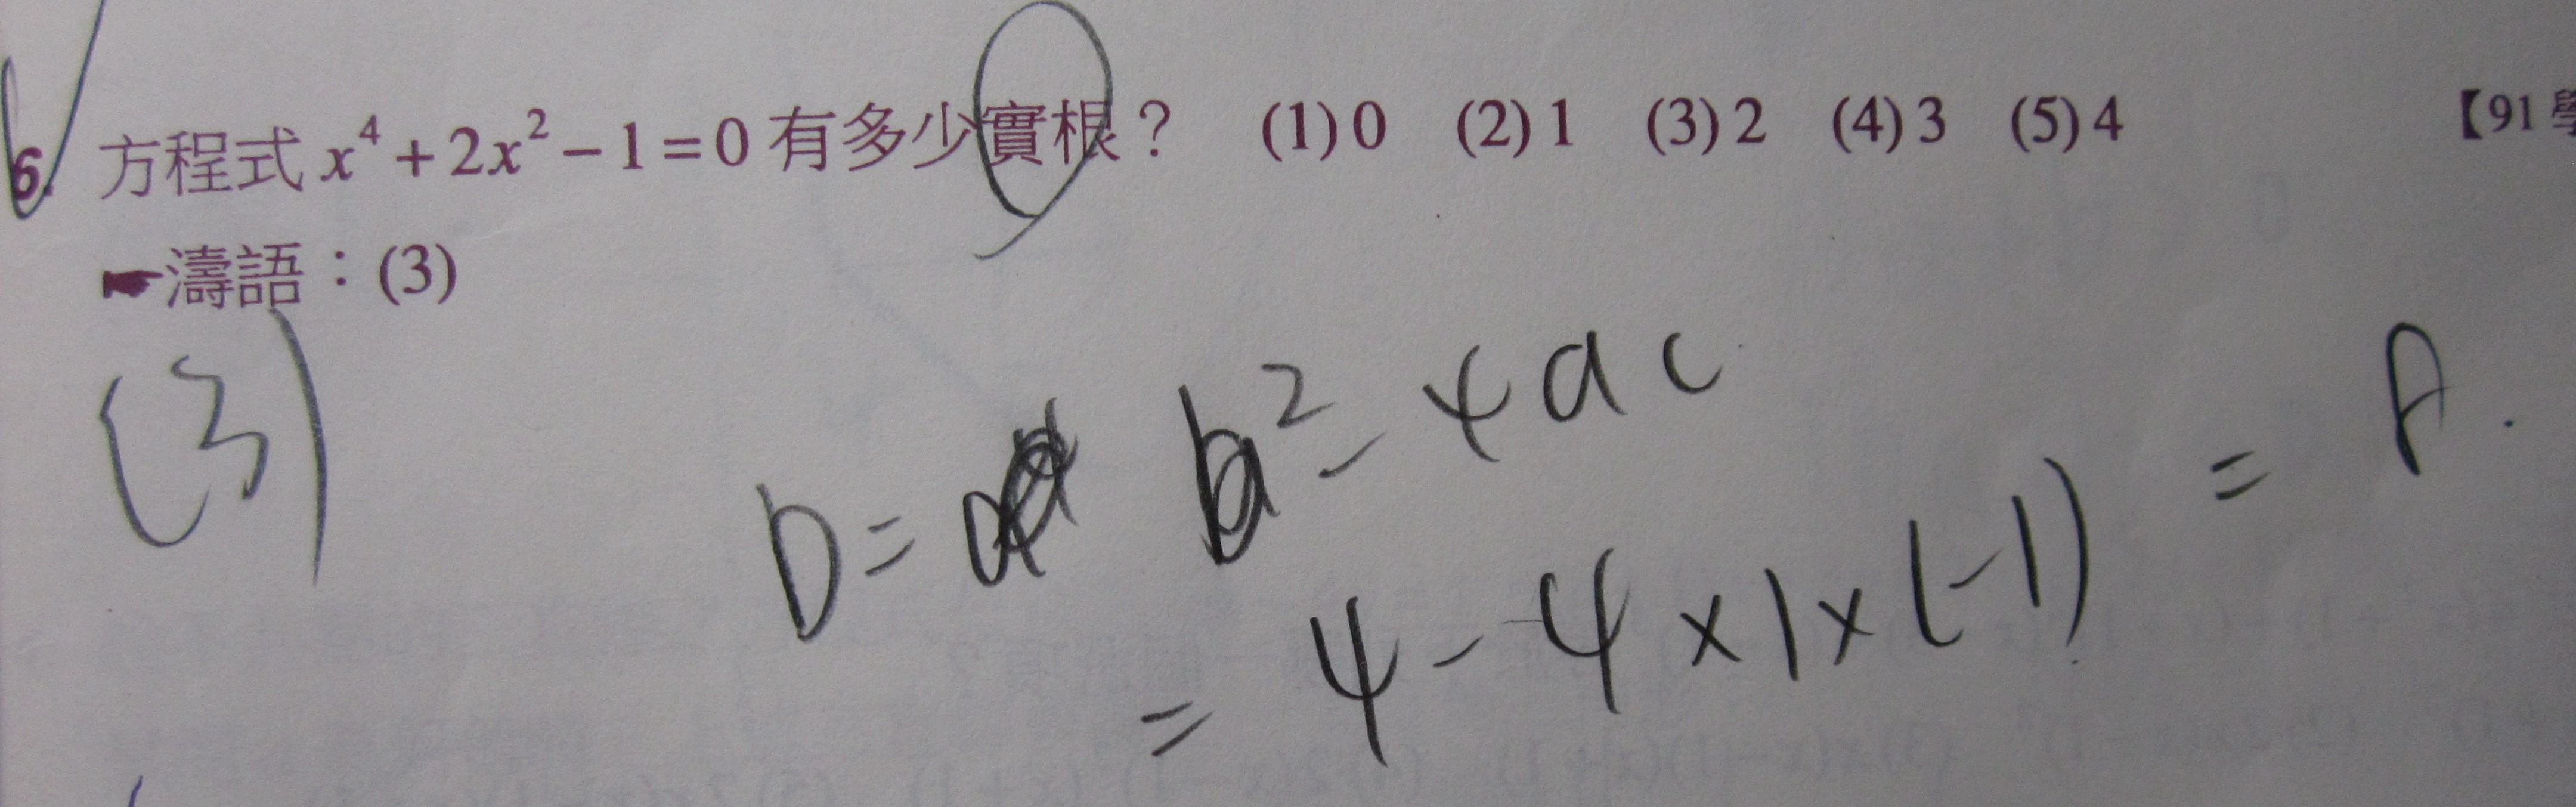 6. 方程式 x⁴ + 2x² − 1 = 0 有多少實根？ (1) 0 (2) 1 (3) 2 (4) 3 (5) 4 【91 學
☛濤語：(3)
(3)
D = b² − 4ac
= 4 − 4 × 1 × (−1) =